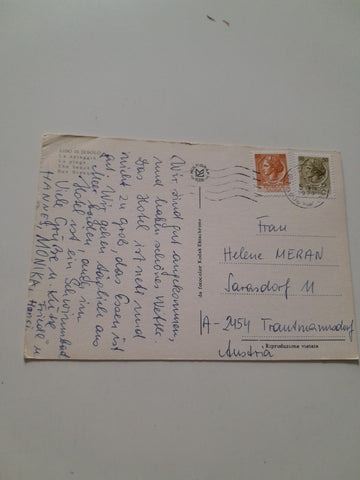 LIDO DI JESOLO
La spiaggia
La plage
The beach
Der Strand
Wir sind gut angekommen,
und haben schönes Wetter.
Das Hotel ist nett und
nicht zu groß das Essen ist
gut. Wir gehen täglich ans
Meer baden auch im
Hotel ist ein Schwimmbad
Viele Grüße u. Küße
HANNES, MONIKA, Friedl u
Hansi
Frau
Helene MERAN
Sarasdorf 11
A-2454 Trautmannsdorf
Austria
Riproduzione vietata